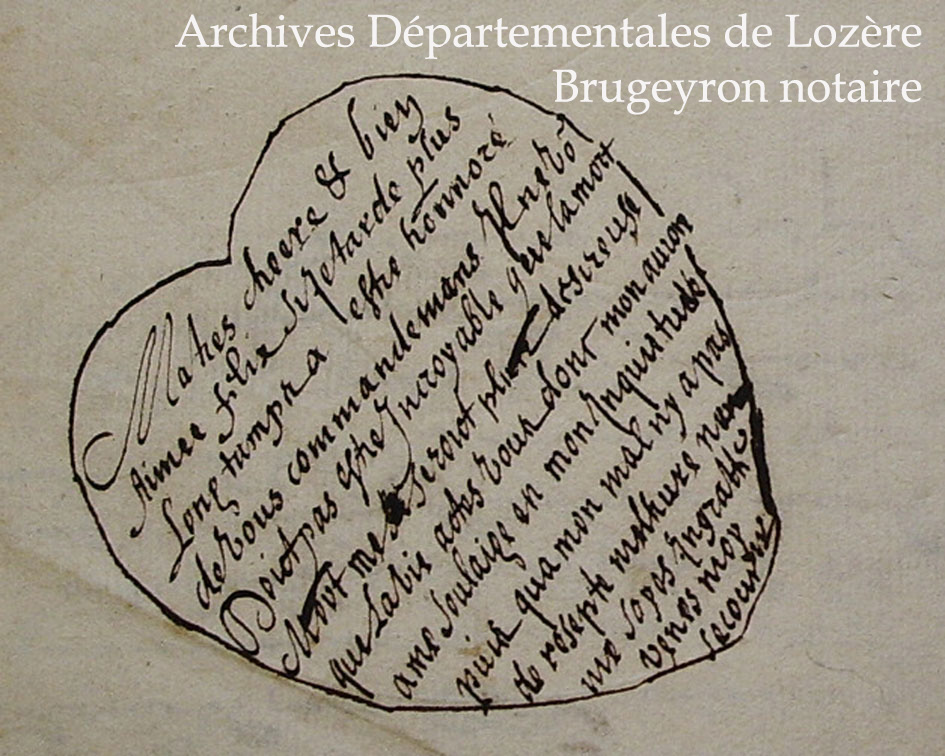 Archives Départementales de Lozère
Brugeyron notaire
Ma tres cheere & bien
Aimee filie Je retarde plus
Long tamps a estre honnoré
de vous commandemans Il ne vo
Doict pas estre Incroyable que la mort
Moot me seroict plus desireuse
que la vie actes vous dont mon auron
ame soulaige en mon Inquiitude
puis qua mon mal ny a pas
de resepte melhure nen
me so pas Ingratte
venes moy
secourir